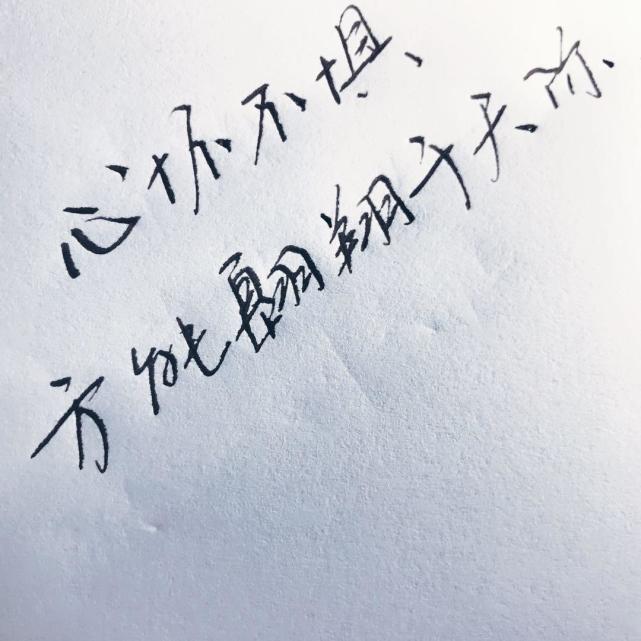 心怀不惧
方能翱翔于天际